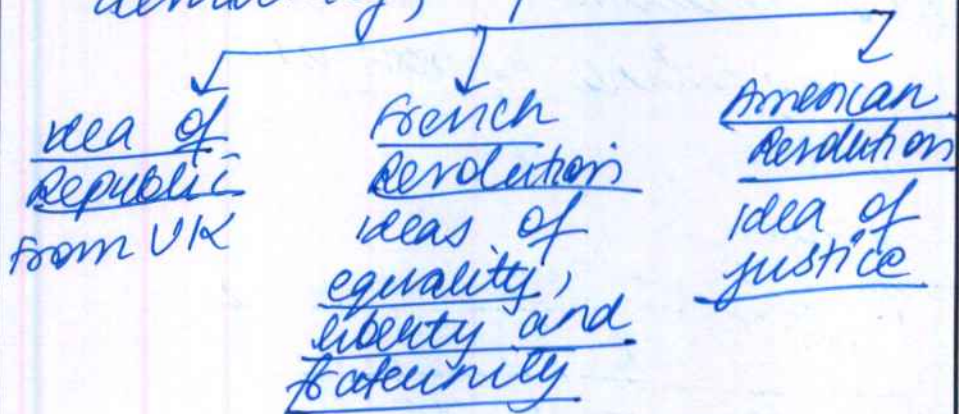 Idea of
Republic
from UK
French
Revolution
ideas of
equality,
liberty and
fraternity
American
Revolution
idea of
justice